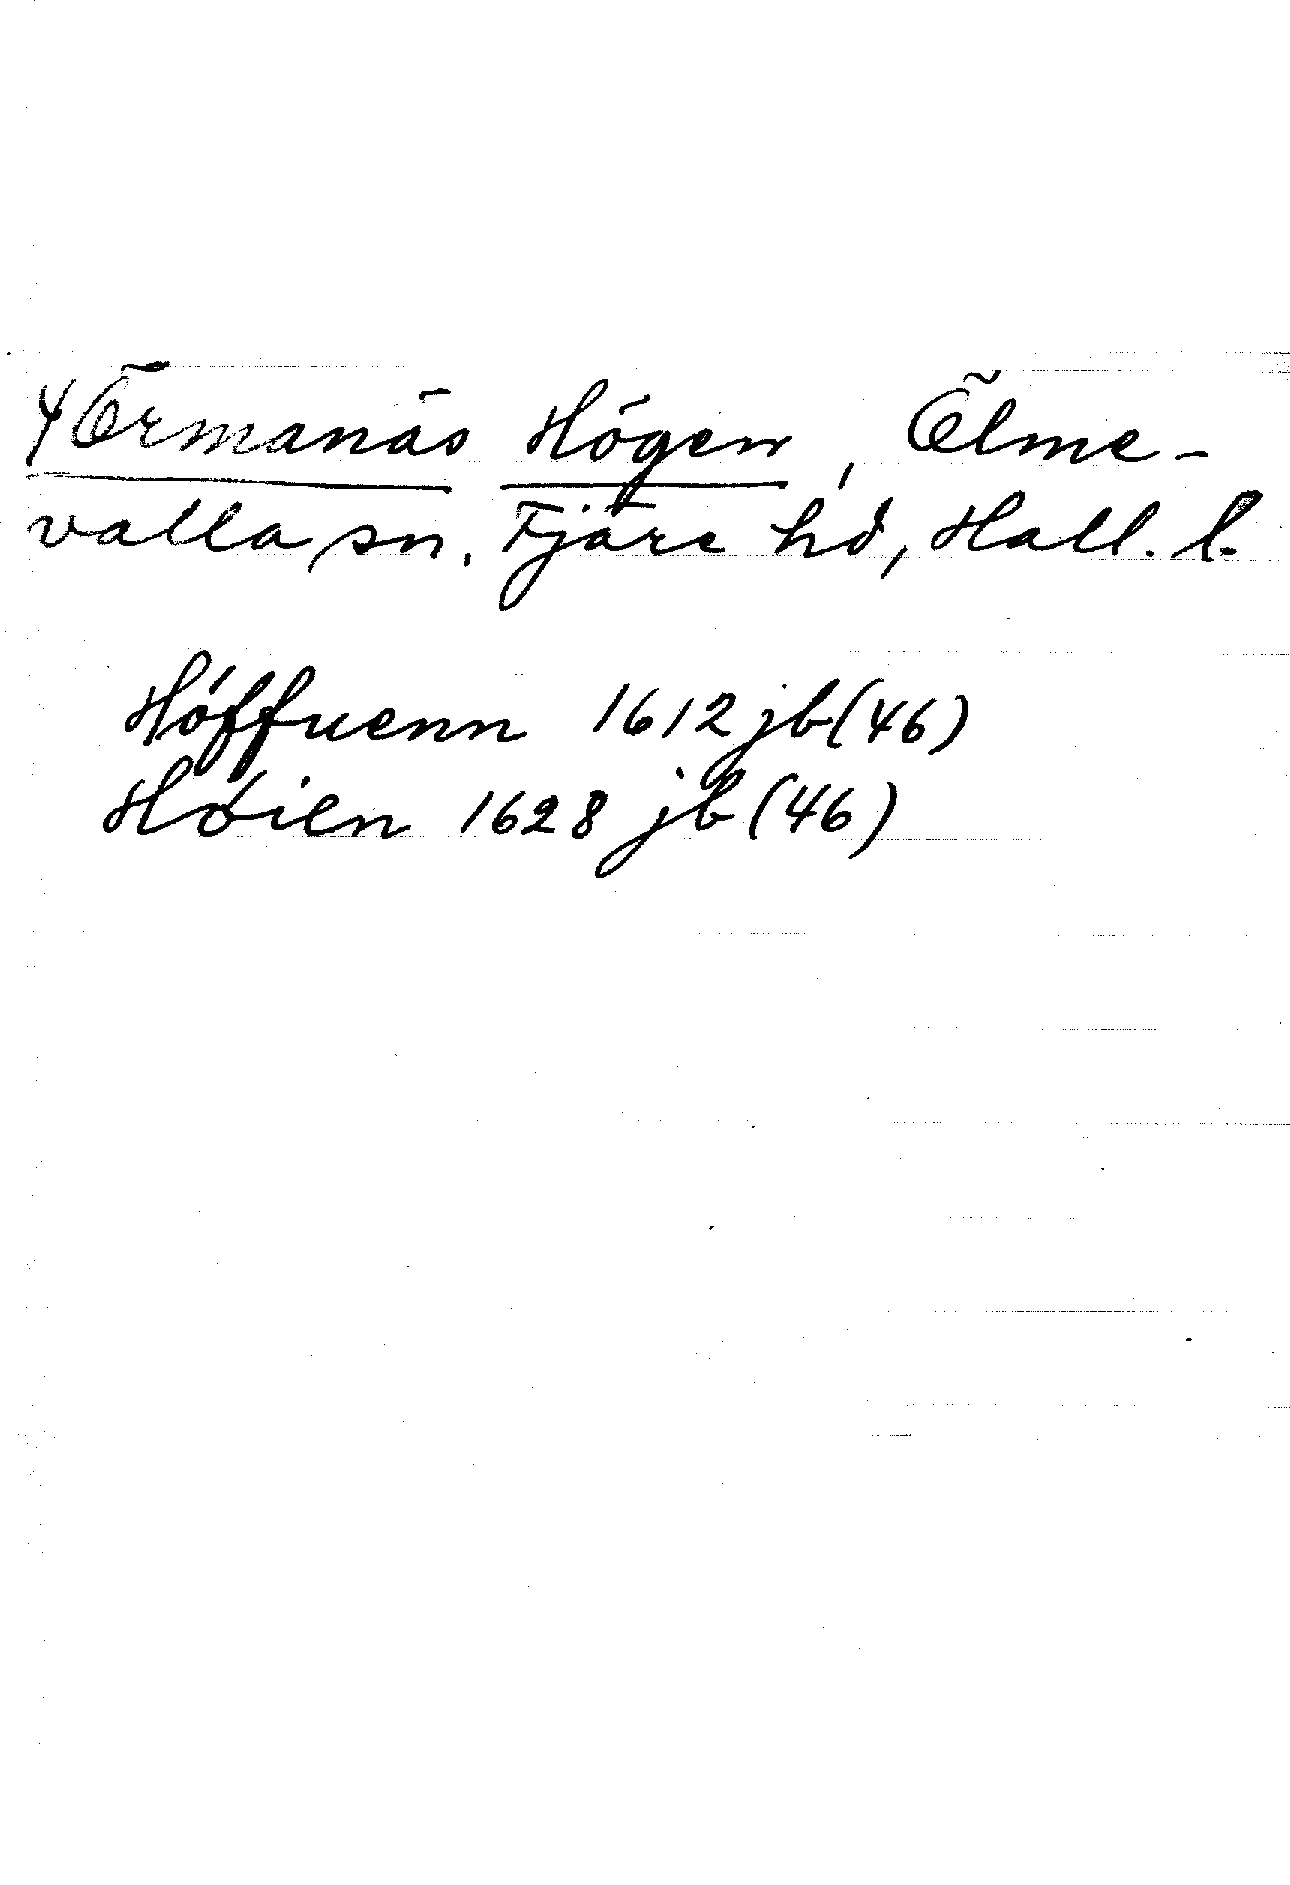 Örmanäs Högen, Ölme-
valla sn, Fjäre hd, Hall. l.
Höffuenn 1612 jb (46)
Høien 1628 jb (46)